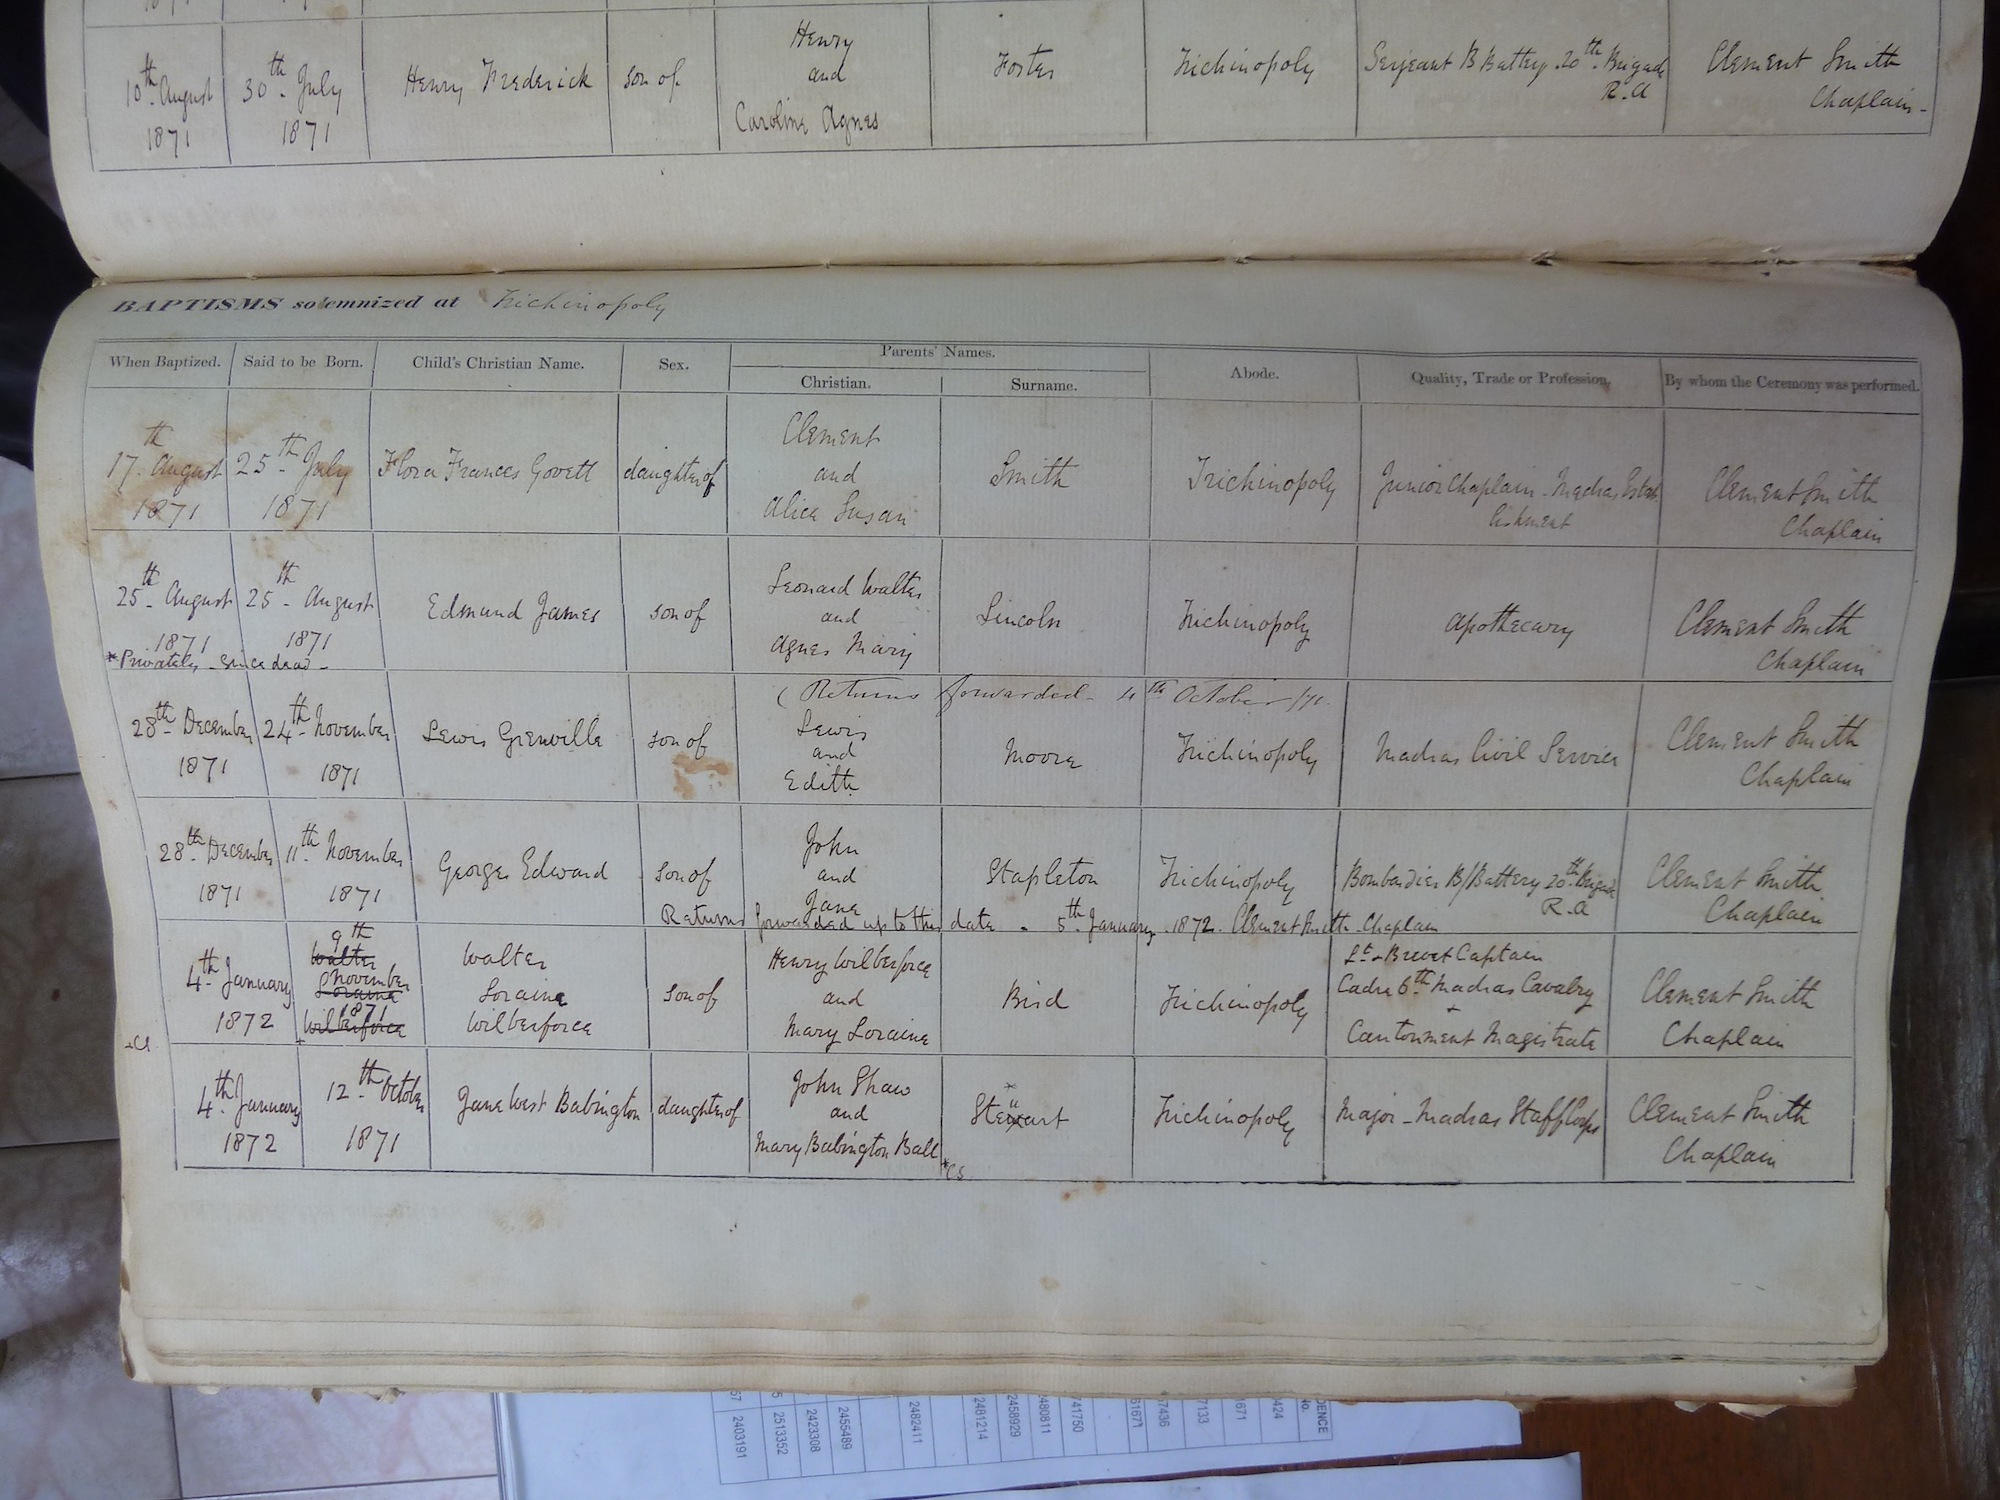 10th August 1871 30th July 1871 Henry Frederick son of Henry and Caroline Agnes Foster Trichinopoly Serjeant B Battery 20th Brigade R.A Clement Smith Chaplain
BAPTISMS solemnized at Trichinopoly
When Baptized. Said to be Born. Child's Christian Name. Sex. Parents' Names. Christian. Surname. Abode. Quality, Trade or Profession. By whom the Ceremony was performed.
17th August 1871 25th July 1871 Flora Frances Govett daughter of Clement and Alice Susan Smith Trichinopoly Junior Chaplain Madras Establishment Clement Smith Chaplain
25th August 1871 25th August 1871 Edmund James son of Leonard Walter and Agnes Mary Lincoln Trichinopoly Apothecary Clement Smith Chaplain
*Privately - since dead -
(Returns forwarded - 4th October /71.
28th December 1871 24th November 1871 Lewis Grenville son of Lewis and Edith Moore Trichinopoly Madras Civil Service Clement Smith Chaplain
28th December 1871 11th November 1871 George Edward son of John and Jane Stapleton Trichinopoly Bombardier B/Battery 20th Brigade R.A Clement Smith Chaplain
Returns forwarded up to this date - 5th January 1872. Clement Smith - Chaplain
4th January 1872 Walter Loraine Wilberforce 9th November 1871 Walter Loraine Wilberforce son of Henry Wilberforce and Mary Loraine Bird Trichinopoly Lt & Brevet Captain Cadre 6th Madras Cavalry + Cantonment Magistrate Clement Smith Chaplain
+CS
4th January 1872 12th October 1871 Jane West Babington daughter of John Shaw and Mary Babington Ball Steuart Trichinopoly Major - Madras Staff Corps Clement Smith Chaplain
*CS
57 2403191
5 2513352
2423308
2455489
2482411
2481214
2458929
480811
741750
61671
7436
7133
1671
424
DENCE No.